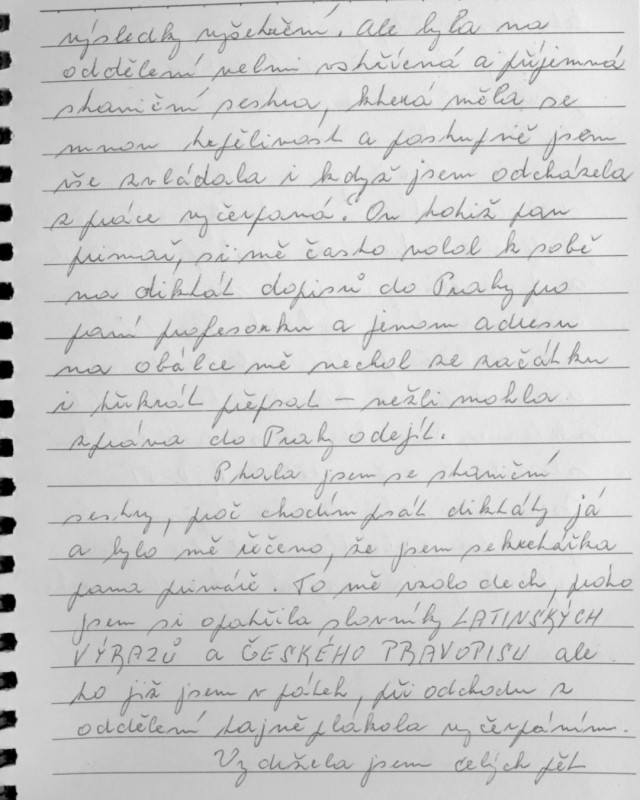 výsledky vyšetření. Ale byla na
oddělení velmi vstřícná a příjemná
staniční sestra, která měla se
mnou trpělivost a postupně jsem
vše zvládala i když jsem odcházela
z práce vyčerpaná. On totiž pan
primář, si mě často volal k sobě
na diktát dopisů do Prahy pro
paní profesorku a jenom adresu
na obálce mě nechal ze začátku
i třikrát přepsat – nežli mohla
zpráva do Prahy odejít.
Ptala jsem se staniční
sestry, proč chodím psát diktáty já
a bylo mě řečeno, že jsem sekretářka
pana primáře. To mě vzalo dech, proto
jsem si opatřila slovníky LATINSKÝCH
VÝRAZŮ a ČESKÉHO PRAVOPISU ale
to již jsem v pátek, při odchodu z
oddělení tajně plakala vyčerpáním.
Vydržela jsem celých pět